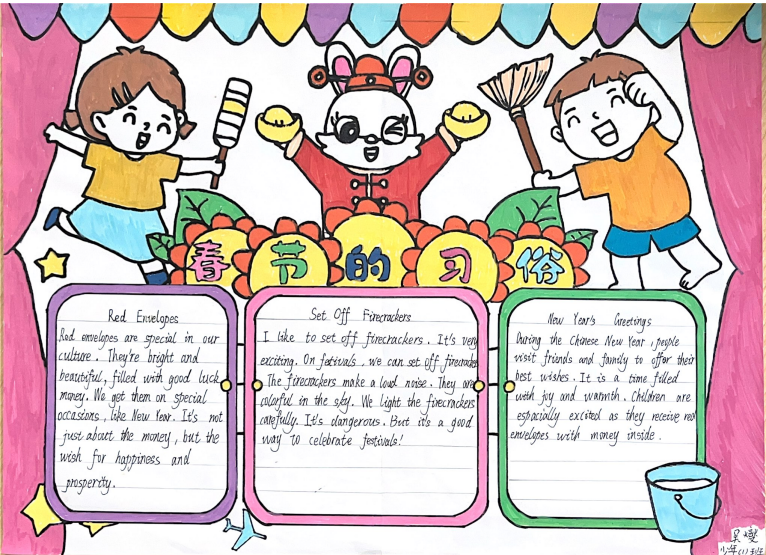 春节的习俗
Red Envelopes
Red envelopes are special in our
culture. They're bright and
beautiful, filled with good luck
money. We get them on special
occasions, like New Year. It's not
just about the money, but the
wish for happiness and
prosperity.
Set Off Firecrackers
I like to set off firecrackers. It's very
exciting. On festivals, we can set off firecracker
The firecrackers make a loud noise. They are
colorful in the sky. We light the firecrackers
carefully. It's dangerous. But it's a good
way to celebrate festivals!
New Year's Greetings
During the Chinese New Year, people
visit friends and family to offer their
best wishes. It is a time filled
with joy and warmth. Children are
espacially excited as they receive red
envelopes with money inside.